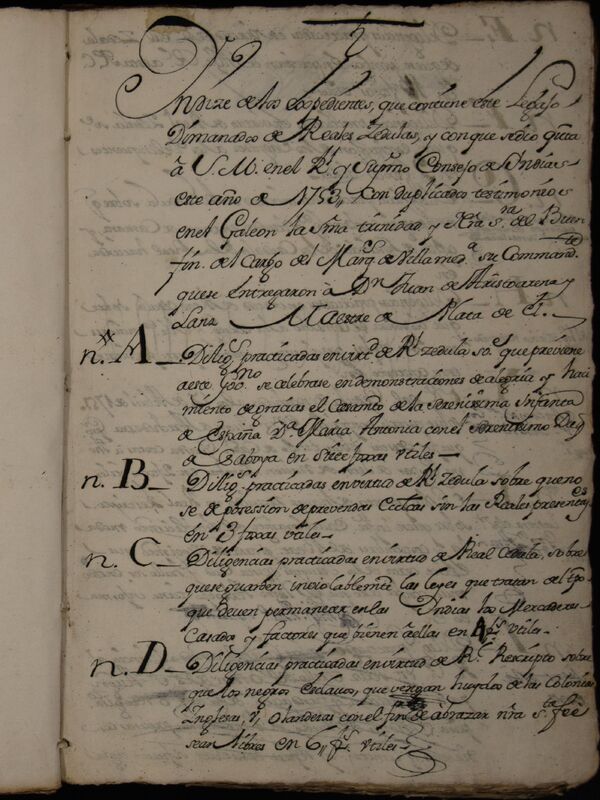 Yndize de los expedientes, que contiene este Legajo
Dimanados de Reales Zedulas, y con que se dio quta
à S. M. en el Rl. y Supmo Consejo de Indias
este año de 1753,, con duplicados testimonios
en el Galeon la Sma trinidad y Nra Sra. del Buen
fin. del cargo del Marqs. de Villa med.a su Command.te
que se entregaron à Dn. Juan de Aristoarena y
Lanz Maestre de Plata de el.
n. A Dilig.s practicadas en virt.d de Rl zedula so.e que previene
a este govno. se celebrase en demonstraciones de alegria y haci
miento de gracias el Casamto de la Serenissima Infanta
de España Da. Maria Antonia con el Serenissimo Duq
de Saboya en siete foxas utiles
n. B Dilig.s practicadas en virtud de Rl Zedula sobre que no
se de posession de prevendas Ecclcas sin las Reales presentas
en 3 foxas utiles
n. C Diligencias practicadas en virtud de Real Cedula, sobre
que se guarden inviolablemte las leyes que tratan del tpo
que deven permanecer en las Indias los Mercaderes
Casados y factores que vienen à ellas en fs. utiles
n. D Diligencias practicadas en virtud de Rl. Rescripto sobre
que los negros Esclavos, que vengan huydos de las Colonias
Inglesas, y olandesas con el fin de abrazar nra sta feè
sean libres en 6,, fs. utiles